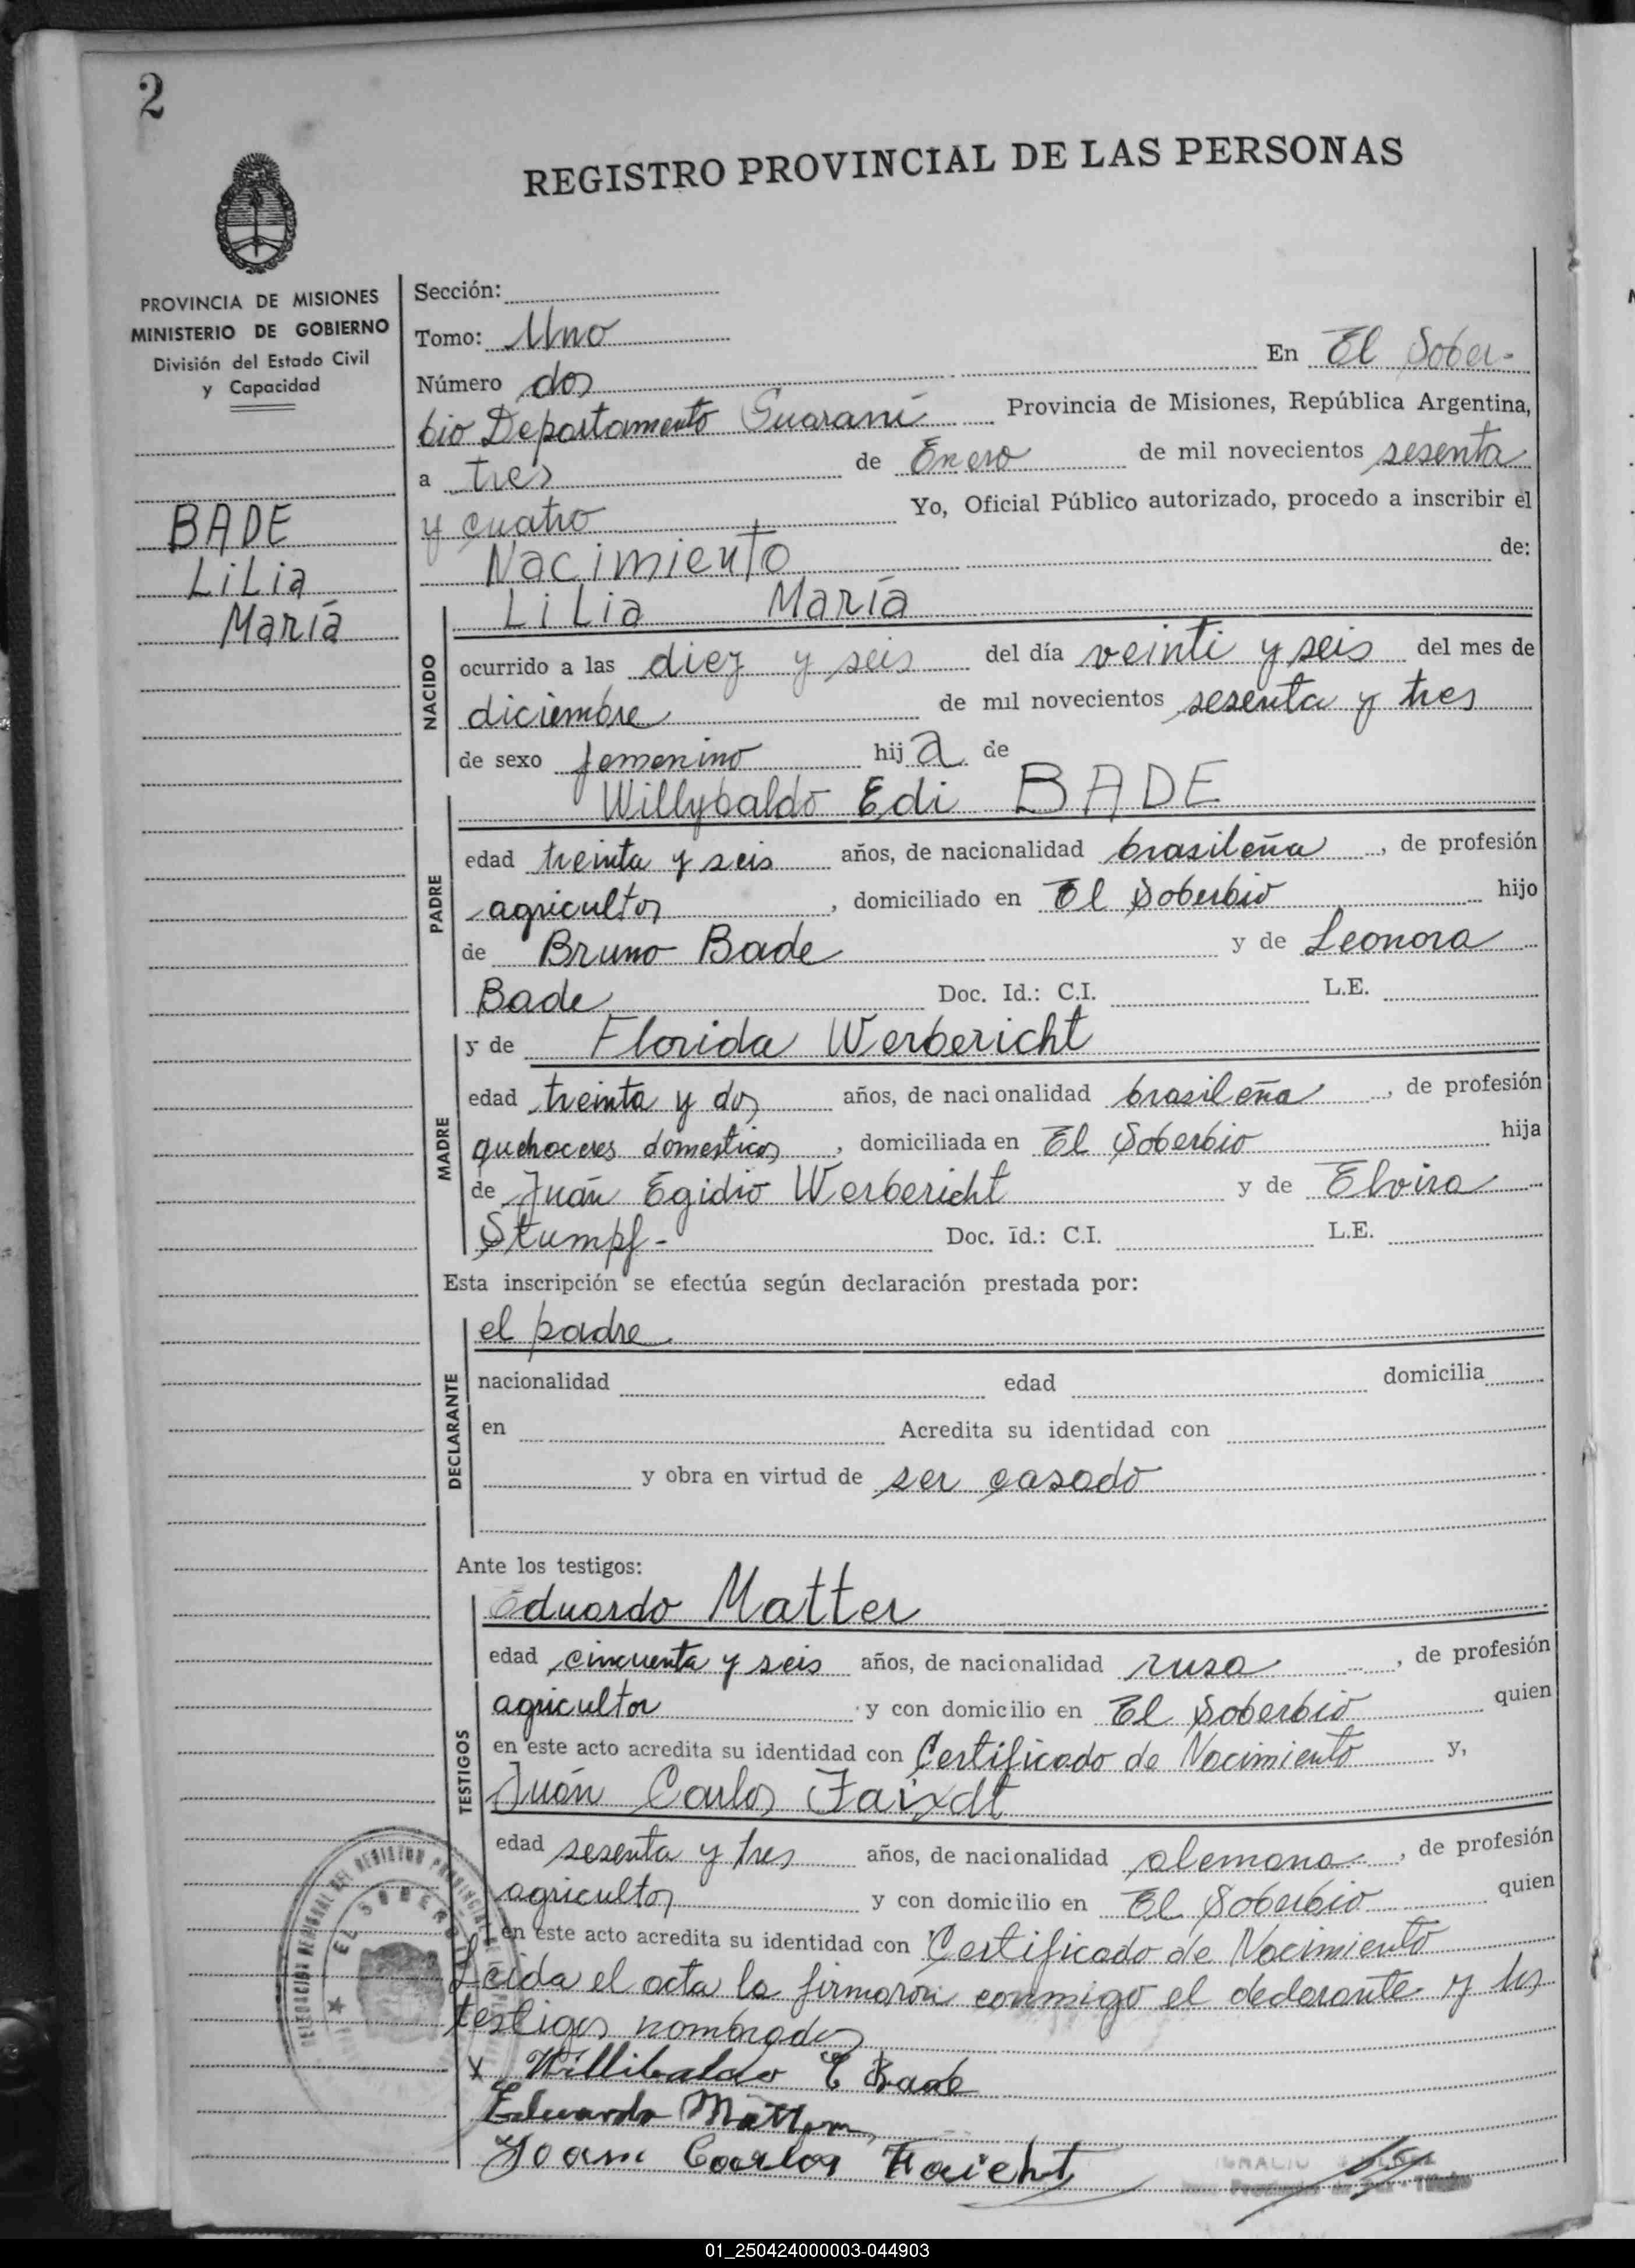 2
REGISTRO PROVINCIAL DE LAS PERSONAS
PROVINCIA DE MISIONES
MINISTERIO DE GOBIERNO
División del Estado Civil
y Capacidad
BADE
LiLia
María
Sección:
Tomo: Uno
Número dos En El Sober-
bio Departamento Guaraní Provincia de Misiones, República Argentina,
a tres de Enero de mil novecientos sesenta
y cuatro Yo, Oficial Público autorizado, procedo a inscribir el
Nacimiento de:
NACIDO
LiLia María
ocurrido a las diez y seis del día veinti y seis del mes de
diciembre de mil novecientos sesenta y tres
de sexo femenino hija de
PADRE
Willybaldo Edi BADE
edad treinta y seis años, de nacionalidad brasileña, de profesión
agricultor, domiciliado en El Soberbio hijo
de Bruno Bade y de Leonora
Bade Doc. Id.: C.I. L.E.
MADRE
y de Florida Werbericht
edad treinta y dos años, de nacionalidad brasileña, de profesión
quehaceres domesticos, domiciliada en El Soberbio hija
de Juán Egidio Werbericht y de Elvira
Stumpf- Doc. id.: C.I. L.E.
Esta inscripción se efectúa según declaración prestada por:
DECLARANTE
el padre
nacionalidad edad domicilia
en Acredita su identidad con
y obra en virtud de ser casado
Ante los testigos:
TESTIGOS
Eduardo Matter
edad cincuenta y seis años, de nacionalidad rusa, de profesión
agricultor y con domicilio en El Soberbio quien
en este acto acredita su identidad con Certificado de Nacimiento y,
Juán Carlos Faixdt
edad sesenta y tres años, de nacionalidad alemana, de profesión
agricultor y con domicilio en El Soberbio quien
en este acto acredita su identidad con Certificado de Nacimiento
Leida el acta la firmaron conmigo el declarante y los
testigos nombrados
x Willibaldo E Bade
Eduardo Mattern
Joam Carlos Faicht
EL SOBERBIO
01_250424000003-044903